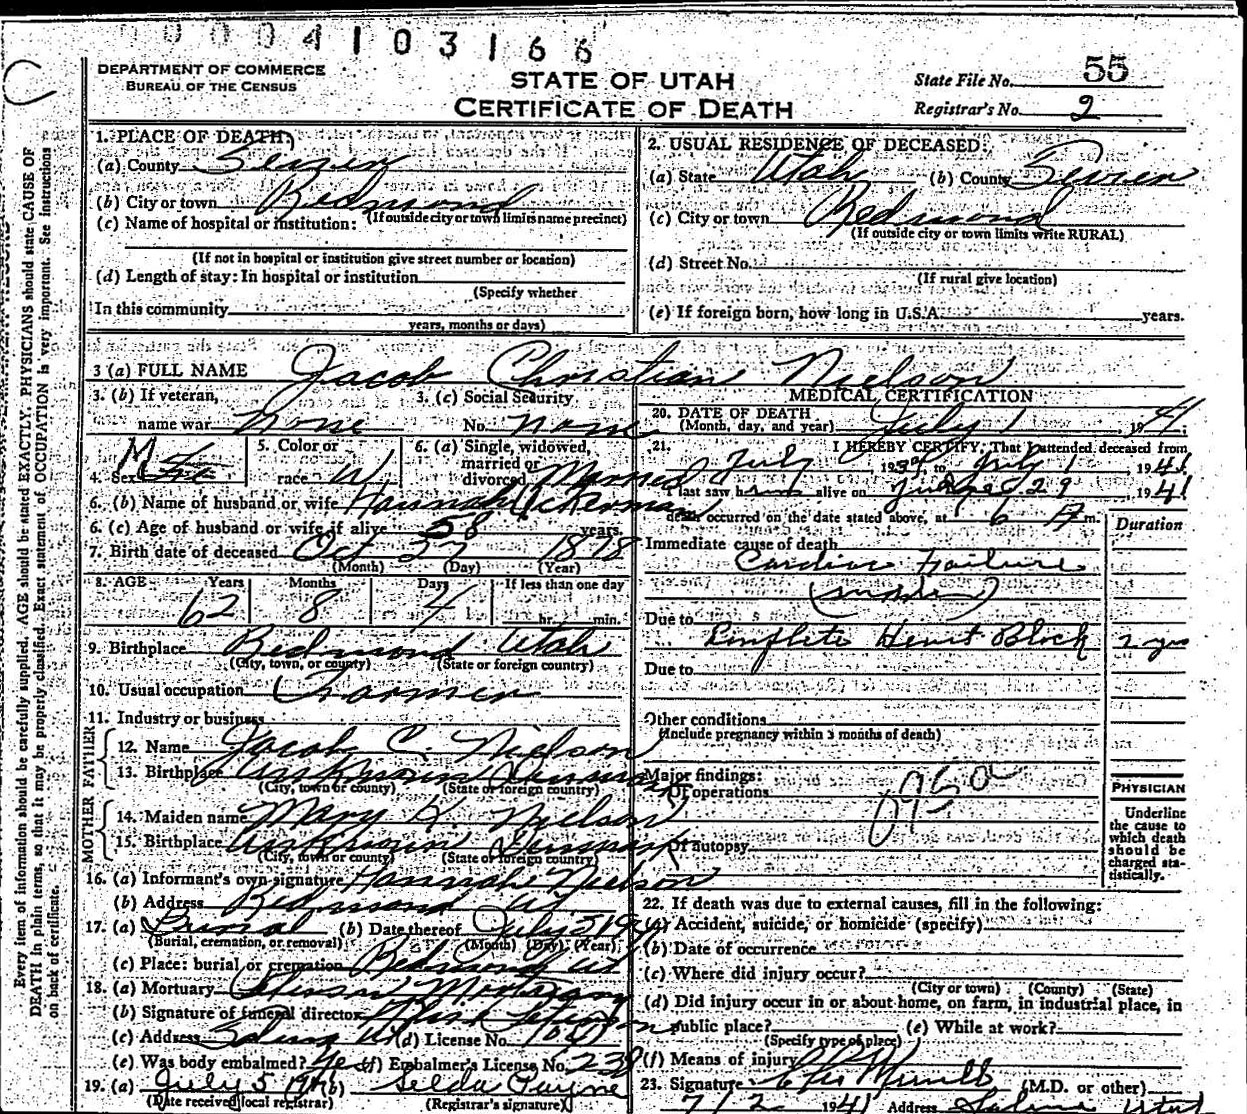 0004103166
DEPARTMENT OF COMMERCE
BUREAU OF THE CENSUS
STATE OF UTAH
CERTIFICATE OF DEATH
State File No. 55
Registrar's No. 2
Every item of information should be carefully supplied. AGE should be stated EXACTLY. PHYSICIANS should state CAUSE OF
DEATH in plain terms, so that it may be properly classified. Exact statement of OCCUPATION is very important. See instructions
on back of certificate.
1. PLACE OF DEATH:
(a) County Sevier
(b) City or town Redmond
(If outside city or town limits name precinct)
(c) Name of hospital or institution:
(If not in hospital or institution give street number or location)
(d) Length of stay: In hospital or institution
(Specify whether
In this community
years, months or days)
2. USUAL RESIDENCE OF DECEASED:
(a) State Utah (b) County Sevier
(c) City or town Redmond
(If outside city or town limits write RURAL)
(d) Street No.
(If rural give location)
(e) If foreign born, how long in U.S.A. years.
3 (a) FULL NAME Jacob Christian Nielson
3. (b) If veteran, 3. (c) Social Security
name war None No. None
4. Sex M 5. Color or race W 6. (a) Single, widowed, married or divorced Married
6. (b) Name of husband or wife Hannah Ackerman
6. (c) Age of husband or wife if alive 58 years
7. Birth date of deceased Oct 27 1878
(Month) (Day) (Year)
8. AGE Years Months Days If less than one day
62 8 4 hr. min.
9. Birthplace Redmond Utah
(City, town, or county) (State or foreign country)
10. Usual occupation Farmer
11. Industry or business
FATHER
12. Name Jacob C. Nielson
13. Birthplace Unknown Denmark
(City, town or county) (State or foreign country)
MOTHER
14. Maiden name Mary K. Nielson
15. Birthplace Unknown Denmark
(City, town or county) (State or foreign country)
16. (a) Informant's own signature Hannah Nielson
(b) Address Redmond Ut
17. (a) Burial (b) Date thereof July 5 1941
(Burial, cremation, or removal) (Month) (Day) (Year)
(c) Place: burial or cremation Redmond Ut
18. (a) Mortuary Mortuary
(b) Signature of funeral director
(c) Address Salina Ut (d) License No.
(e) Was body embalmed? Yes (f) Embalmer's License No. 238
19. (a) July 5 (b) Selda Payne
(Date received local registrar) (Registrar's signature)
MEDICAL CERTIFICATION
20. DATE OF DEATH
(Month, day, and year) July 1 1941
21. I HEREBY CERTIFY, That I attended deceased from
July 1939 to July 1 1941
I last saw him alive on June 29 1941
death occurred on the date stated above, at 6 P m.
Duration
Immediate cause of death
Cardiac Failure
Due to Complete Heart Block 2 yrs
Due to
Other conditions
(Include pregnancy within 3 months of death)
Major findings:
Of operations
Of autopsy
PHYSICIAN
Underline
the cause to
which death
should be
charged sta-
tistically.
22. If death was due to external causes, fill in the following:
(a) Accident, suicide, or homicide (specify)
(b) Date of occurrence
(c) Where did injury occur?
(City or town) (County) (State)
(d) Did injury occur in or about home, on farm, in industrial place, in
public place? (e) While at work?
(Specify type of place)
(f) Means of injury
23. Signature (M.D. or other)
7/2 1941 Address Salina Utah